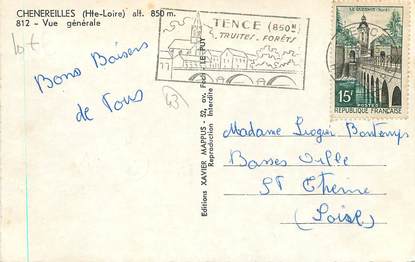 CHENEREILLES (Hte-Loire) alt. 850 m.
812 - Vue générale
10 F
Bons Baisers
de Tous
43
TENCE (850M)
TRUITES - FORÊTS
LE QUESNOY (Nord)
15F
POSTES
REPUBLIQUE FRANÇAISE
Editions XAVIER MAPPUS - 52, av. Foch - LE PUY
Reproduction Interdite
Madame Roger Bontemps
Basses Ville
St Etienne
(Loire)